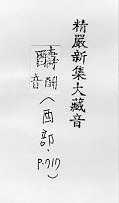 精嚴新集大藏音
音
(酉部.
P.717)